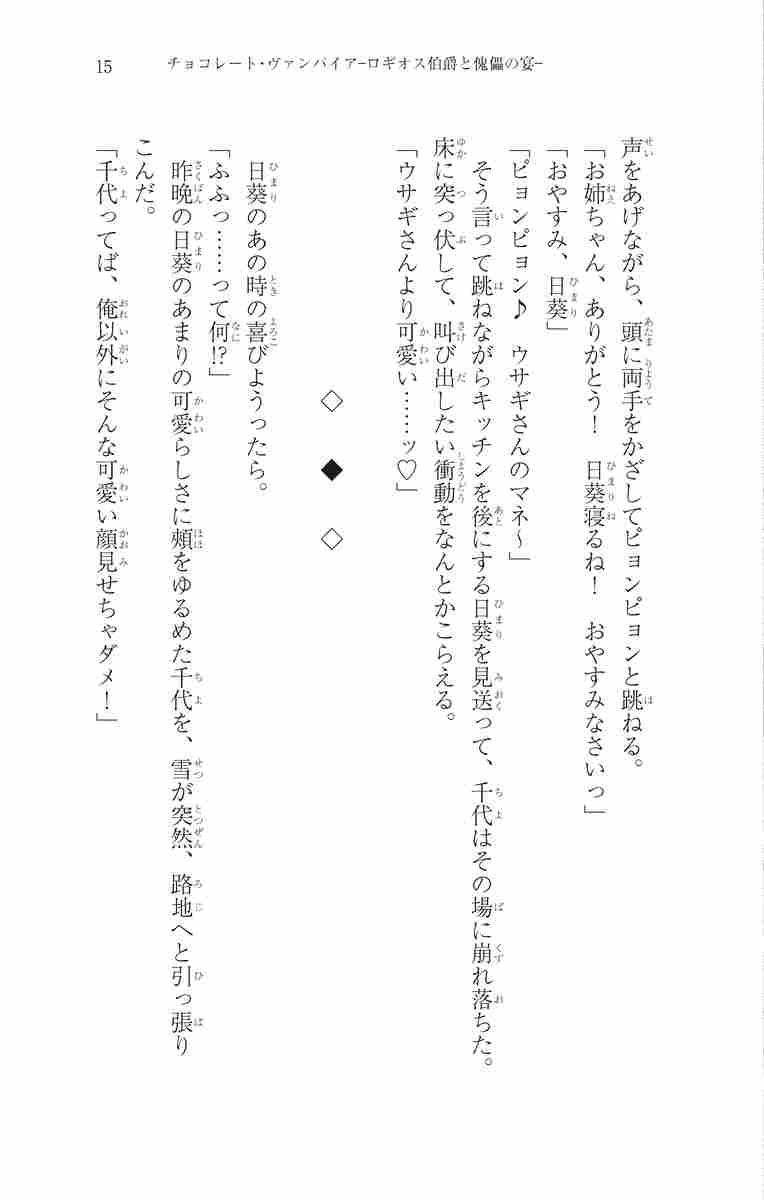 15
チョコレート・ヴァンパイア−ロギオス伯爵と傀儡の宴−
声をあげながら、頭に両手をかざしてピョンピョンと跳ねる。
「お姉ちゃん、ありがとう！　日葵寝るね！　おやすみなさいっ」
「おやすみ、日葵」
「ピョンピョン♪　ウサギさんのマネ〜」
そう言って跳ねながらキッチンを後にする日葵を見送って、千代はその場に崩れ落ちた。
床に突っ伏して、叫び出したい衝動をなんとかこらえる。
「ウサギさんより可愛い……ッ♡」
◇　◆　◇
日葵のあの時の喜びようったら。
「ふふっ……って何!?」
昨晩の日葵のあまりの可愛らしさに頰をゆるめた千代を、雪が突然、路地へと引っ張り
こんだ。
「千代ってば、俺以外にそんな可愛い顔見せちゃダメ！」